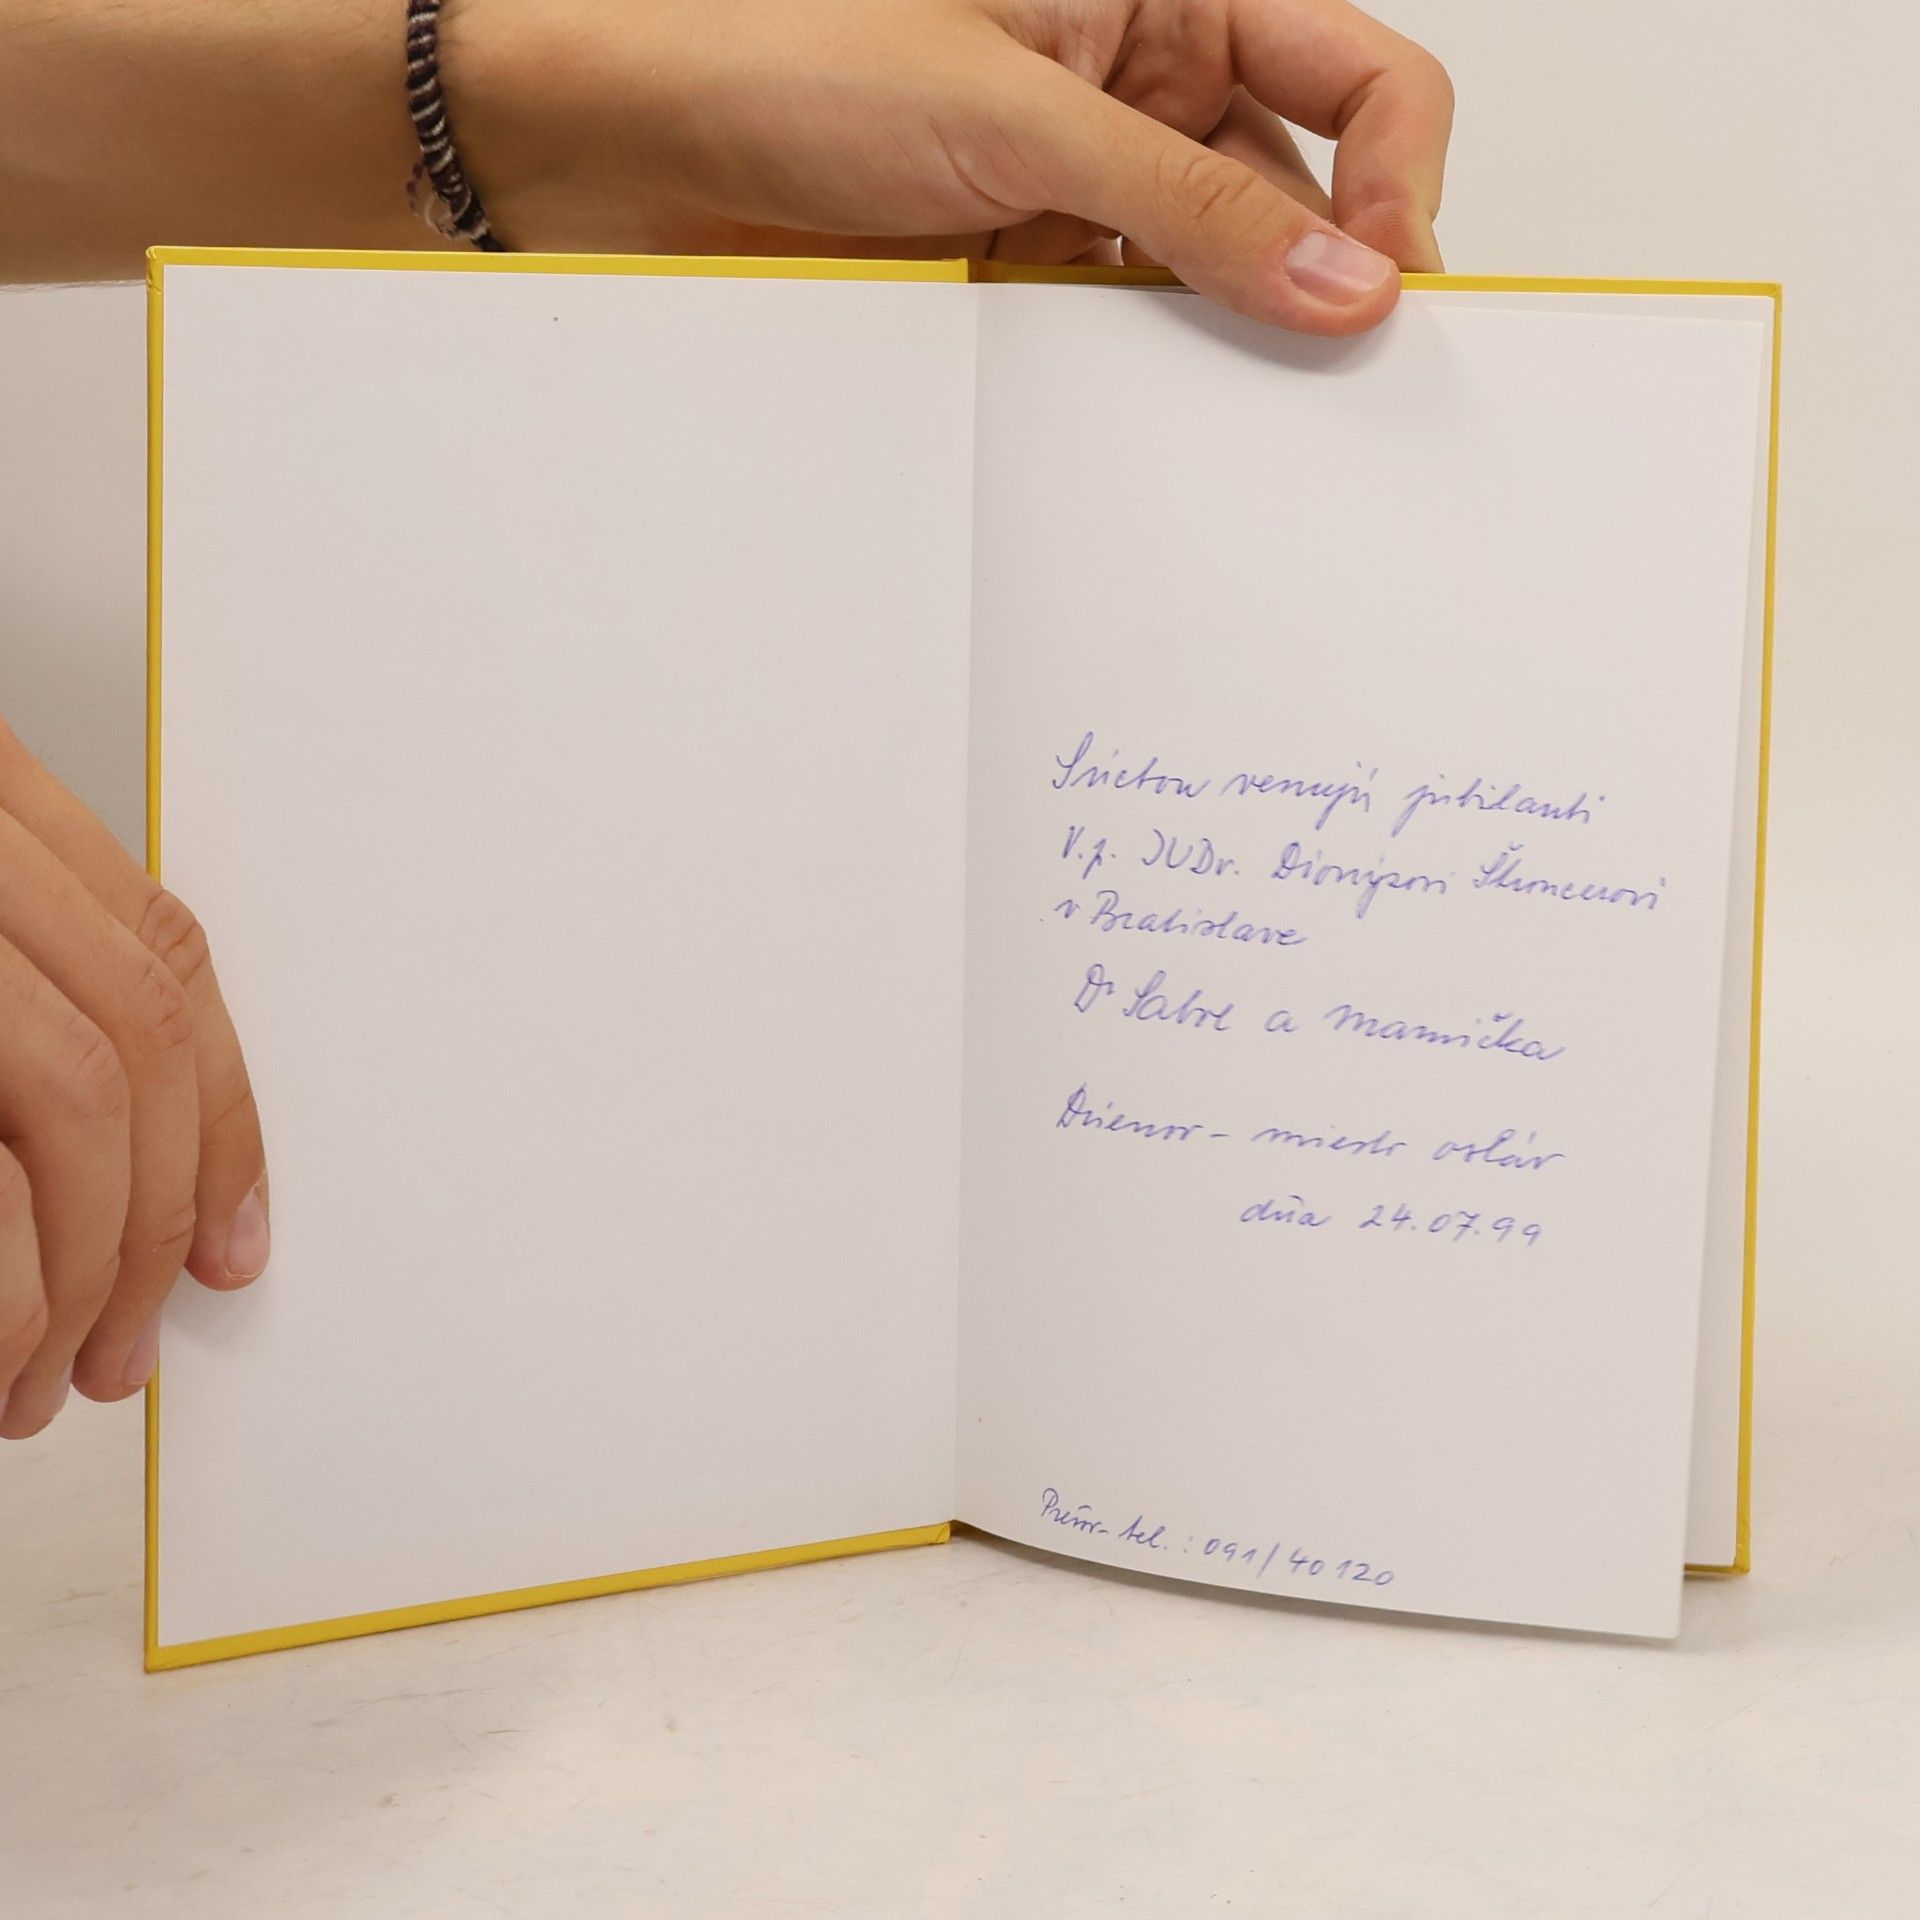 S úctou venujú jubilanti
V.p. JUDr. Dionýzovi
v Bratislave
Dr a mamička
Drienov - miesto osláv
dňa 24.07.99
Prešov- tel. : 091/40120